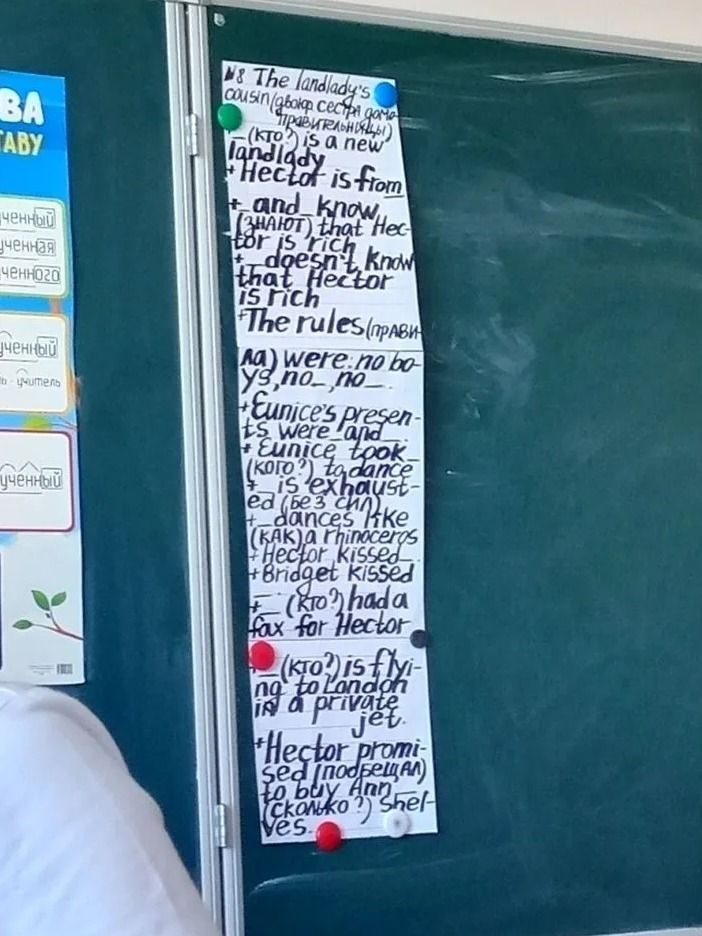 ВА
ТАВУ
ученный
ученная
ученного
ученный
учитель
ученный
№8 The landlady's
cousin (двоюр сестра домо-
правительницы)
_ (кто?) is a new
landlady
+ Hector is from
+ _ and _ know
(знают) that Hec-
tor is rich
+ _ doesn't know
that Hector
is rich
+ The rules (прави-
ла) were: no bo-
ys, no _, no _.
+ Eunice's presen-
ts were _ and _
+ Eunice took _
(кого?) to dance
+ _ is exhaust-
ed (без сил)
+ _ dances like
(как) a rhinoceros
+ Hector kissed _
+ Bridget kissed
+ _ (кто?) had a
fax for Hector
_ (кто?) is flyi-
ng to London
in a private
jet.
+ Hector promi-
sed (подбещал)
to buy Ann _
(сколько?) shel-
ves.